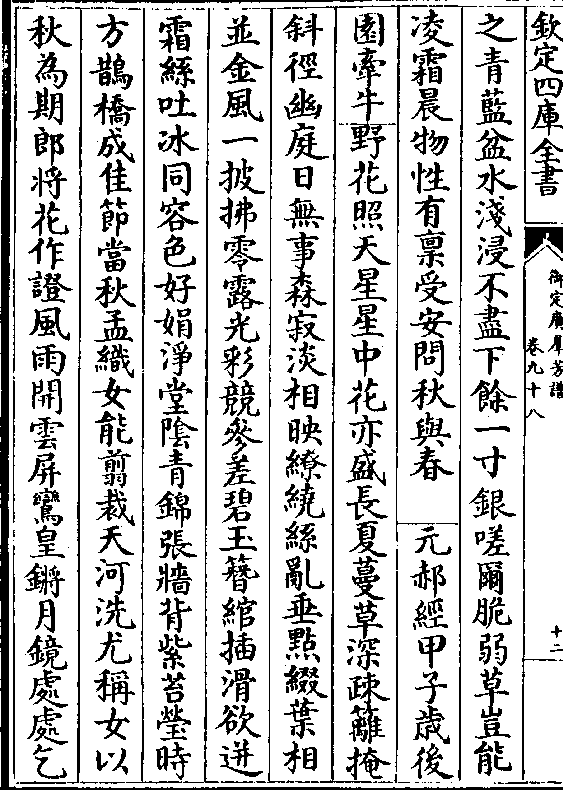 欽定四庫全書
御定廣羣芳譜
卷九十八
十二
之青藍盆水淺浸不盡下餘一寸銀嗟爾脆弱草豈能
凌霜晨物性有禀受安問秋與春 元郝經甲子歲後
園牽牛野花照天星星中花亦盛長夏蔓草深疎籬掩
斜徑幽庭日無事森寂淡相映繚繞絲亂垂點綴葉相
並金風一披拂零露光彩競參差碧玉簪綰插滑欲迸
霜綠吐冰同容色好娟淨堂陰青錦張牆背紫苔瑩時
方鵲橋成佳節當秋孟織女能翦裁天河洗尤稱女以
秋為期郎將花作證風雨開雲屏鸞皇鏘月鏡處處乞